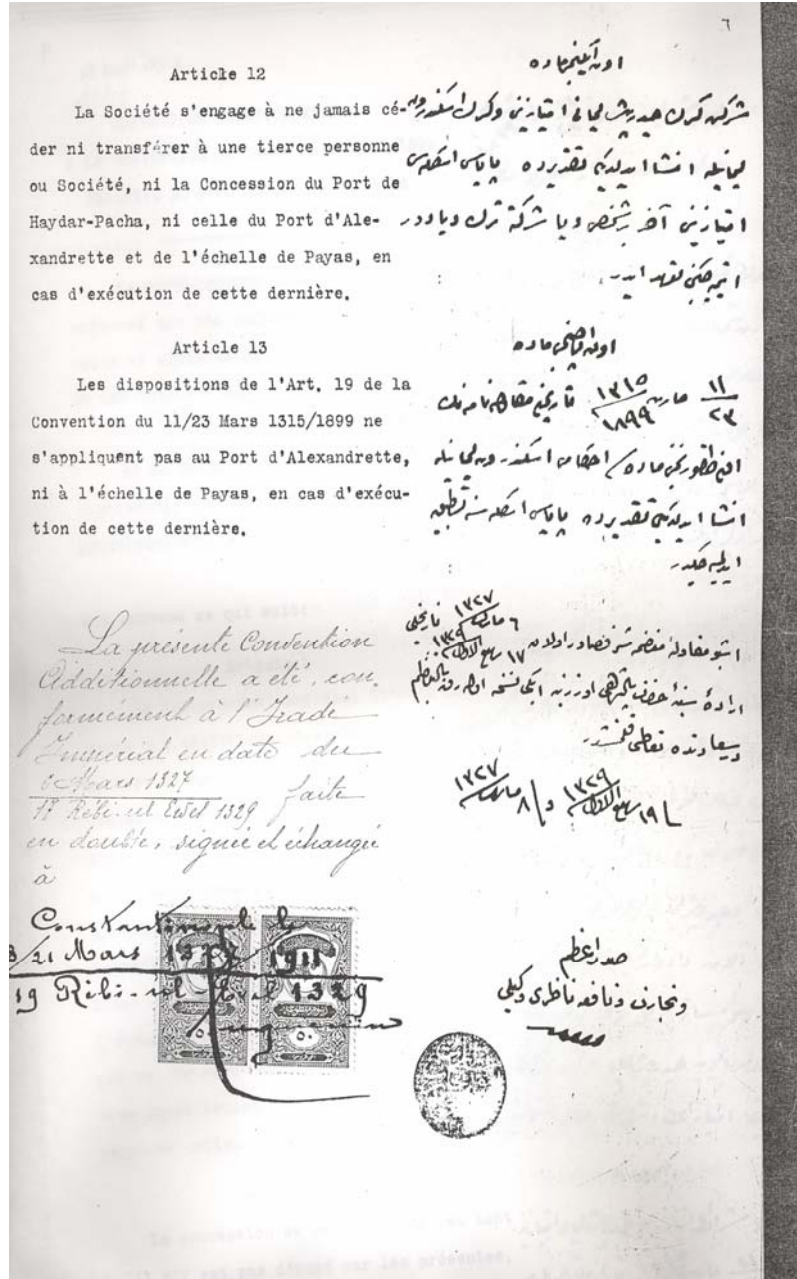 ٦
Article 12
La Société s'engage à ne jamais cé-
der ni transférer à une tierce personne
ou Société, ni la Concession du Port de
Haydar-Pacha, ni celle du Port d'Ale-
xandrette et de l'échelle de Payas, en
cas d'exécution de cette dernière.
Article 13
Les dispositions de l'Art. 19 de la
Convention du 11/23 Mars 1315/1899 ne
s'appliquent pas au Port d'Alexandrette,
ni à l'échelle de Payas, en cas d'exécu-
tion de cette dernière.
La présente Convention
Additionnelle a été, con-
formément à l'Iradé
Impérial en date du
6 Mars 1327
17 Rébi-ul Ewel 1329 faite
en double, signée et échangée
à
Constantinople le
8/21 Mars 1327/1911
19 Rébi-ul-Evel 1329
اون ایكنجی ماده
شركت كرك حیدرپاشا لیمانی امتیازینی و كرك اسكندرون
لیمانیله انشا ایدلدیكی تقدیرده پایاس اسكله سی
امتیازینی آخر بر شخص ویا شركته ترك ویا دور
ایتمیه جكنی تعهد ایدر
اون اوچنجی ماده
١١/٢٣ مارت ١٣١٥/١٨٩٩ تاریخلی مقاوله نامه نك
اون طقوزنجی ماده سی احكامی اسكندرون لیمانیله
انشا ایدلدیكی تقدیرده پایاس اسكله سنه تطبیق
ایدلمیه جكدر
اشبو مقاوله منضمه شرفصادر اولان ٦ مارت ١٣٢٧ ١٧ ربیع الاول ١٣٢٩ تاریخلی
اراده سنیه حضرت پادشاهی اوزرینه ایكی نسخه اوله رق بالتنظیم
درسعادتده تعاطی قلنمشدر
١٩ ربیع الاول ١٣٢٩ و ٨ مارت ١٣٢٧
صدر اعظم
وتجارت ونافعه ناظری وكیلی
٥٠
٥٠